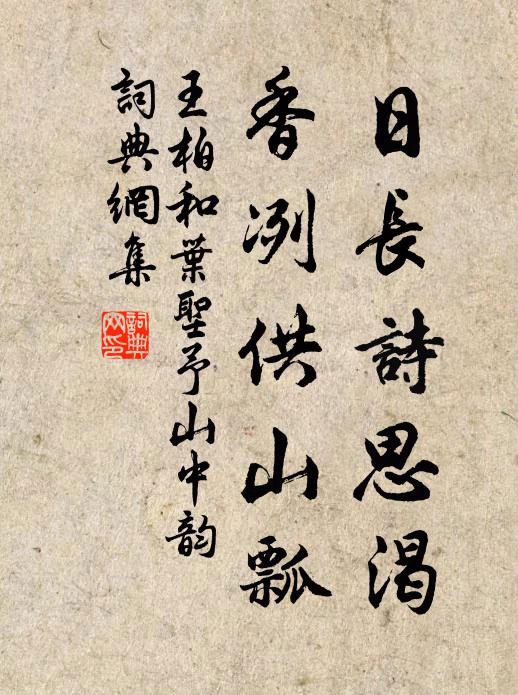 日長詩思渴
香冽供山瓢
王柏和葉聖予山中韵
詞典網集
詞典
网印